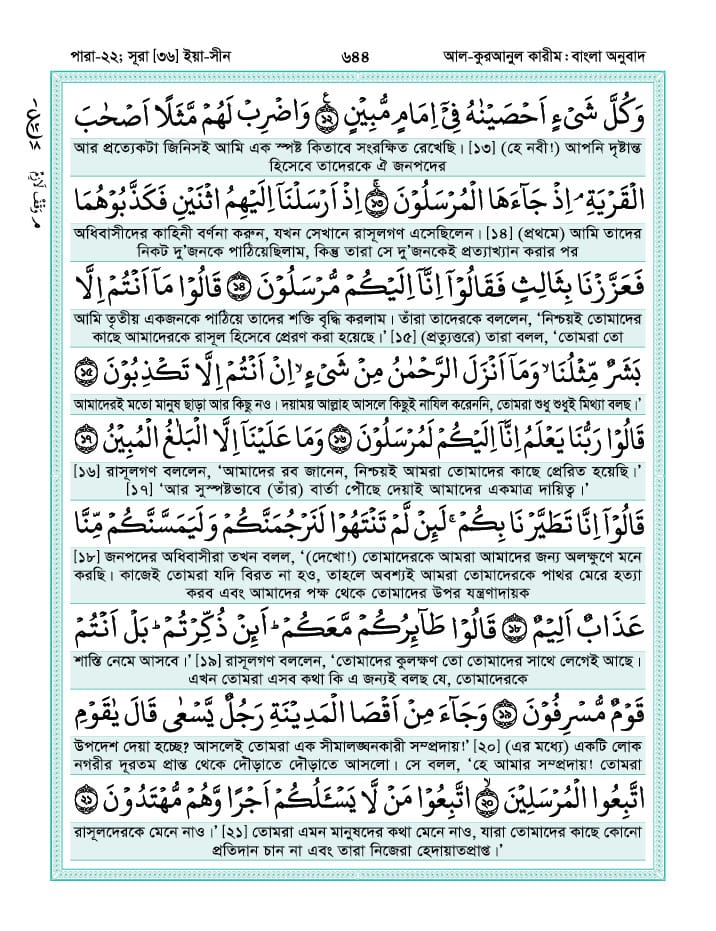 পারা-২২; সূরা [৩৬] ইয়া-সীন
৬৪৪
আল-কুরআনুল কারীম : বাংলা অনুবাদ
وَكُلَّ شَىْءٍ اَحْصَيْنٰهُ فِىْٓ اِمَامٍ مُّبِيْنٍ ﴿১২﴾ وَاضْرِبْ لَهُمْ مَّثَلًا اَصْحٰبَ
আর প্রত্যেকটা জিনিসই আমি এক স্পষ্ট কিতাবে সংরক্ষিত রেখেছি। [১৩] (হে নবী!) আপনি দৃষ্টান্ত
হিসেবে তাদেরকে ঐ জনপদের
الْقَرْيَةِ ۘ اِذْ جَآءَهَا الْمُرْسَلُوْنَ ﴿১৩﴾ اِذْ اَرْسَلْنَآ اِلَيْهِمُ اثْنَيْنِ فَكَذَّبُوْهُمَا
অধিবাসীদের কাহিনী বর্ণনা করুন, যখন সেখানে রাসূলগণ এসেছিলেন। [১৪] (প্রথমে) আমি তাদের
নিকট দু’জনকে পাঠিয়েছিলাম, কিন্তু তারা সে দু’জনকেই প্রত্যাখ্যান করার পর
فَعَزَّزْنَا بِثَالِثٍ فَقَالُوْٓا اِنَّآ اِلَيْكُمْ مُّرْسَلُوْنَ ﴿১৪﴾ قَالُوْا مَآ اَنْتُمْ اِلَّا
আমি তৃতীয় একজনকে পাঠিয়ে তাদের শক্তি বৃদ্ধি করলাম। তাঁরা তাদেরকে বললেন, ‘নিশ্চয়ই তোমাদের
কাছে আমাদেরকে রাসূল হিসেবে প্রেরণ করা হয়েছে।’ [১৫] (প্রত্যুত্তরে) তারা বলল, ‘তোমরা তো
بَشَرٌ مِّثْلُنَا ۙ وَمَآ اَنْزَلَ الرَّحْمٰنُ مِنْ شَىْءٍ ۙ اِنْ اَنْتُمْ اِلَّا تَكْذِبُوْنَ ﴿১৫﴾
আমাদেরই মতো মানুষ ছাড়া আর কিছু নও। দয়াময় আল্লাহ আসলে কিছুই নাযিল করেননি, তোমরা শুধু শুধুই মিথ্যা বলছ।’
قَالُوْا رَبُّنَا يَعْلَمُ اِنَّآ اِلَيْكُمْ لَمُرْسَلُوْنَ ﴿১৬﴾ وَمَا عَلَيْنَآ اِلَّا الْبَلٰغُ الْمُبِيْنُ ﴿১৭﴾
[১৬] রাসূলগণ বললেন, ‘আমাদের রব জানেন, নিশ্চয়ই আমরা তোমাদের কাছে প্রেরিত হয়েছি।’
[১৭] ‘আর সুস্পষ্টভাবে (তাঁর) বার্তা পৌছে দেয়াই আমাদের একমাত্র দায়িত্ব।’
قَالُوْٓا اِنَّا تَطَيَّرْنَا بِكُمْ ۚ لَئِنْ لَّمْ تَنْتَهُوْا لَنَرْجُمَنَّكُمْ وَلَيَمَسَّنَّكُمْ مِّنَّا
[১৮] জনপদের অধিবাসীরা তখন বলল, ‘(দেখো!) তোমাদেরকে আমরা আমাদের জন্য অলক্ষুণে মনে
করছি। কাজেই তোমরা যদি বিরত না হও, তাহলে অবশ্যই আমরা তোমাদেরকে পাথর মেরে হত্যা
করব এবং আমাদের পক্ষ থেকে তোমাদের উপর যন্ত্রণাদায়ক
عَذَابٌ اَلِيْمٌ ﴿১৮﴾ قَالُوْا طَآئِرُكُمْ مَّعَكُمْ ؕ اَئِنْ ذُكِّرْتُمْ ؕ بَلْ اَنْتُمْ
শাস্তি নেমে আসবে।’ [১৯] রাসূলগণ বললেন, ‘তোমাদের কুলক্ষণ তো তোমাদের সাথে লেগেই আছে।
এখন তোমরা এসব কথা কি এ জন্যই বলছ যে, তোমাদেরকে
قَوْمٌ مُّسْرِفُوْنَ ﴿১৯﴾ وَجَآءَ مِنْ اَقْصَا الْمَدِيْنَةِ رَجُلٌ يَّسْعٰى قَالَ يٰقَوْمِ
উপদেশ দেয়া হচ্ছে? আসলেই তোমরা এক সীমালঙ্ঘনকারী সম্প্রদায়!’ [২০] (এর মধ্যে) একটি লোক
নগরীর দূরতম প্রান্ত থেকে দৌড়াতে দৌড়াতে আসলো। সে বলল, ‘হে আমার সম্প্রদায়! তোমরা
اتَّبِعُوا الْمُرْسَلِيْنَ ﴿২০﴾ اتَّبِعُوْا مَنْ لَّا يَسْـَٔلُكُمْ اَجْرًا وَّهُمْ مُّهْتَدُوْنَ ﴿২১﴾
রাসূলদেরকে মেনে নাও।’ [২১] তোমরা এমন মানুষদের কথা মেনে নাও, যারা তোমাদের কাছে কোনো
প্রতিদান চান না এবং তারা নিজেরা হেদায়াতপ্রাপ্ত।’
وَقْفِ لَازِم